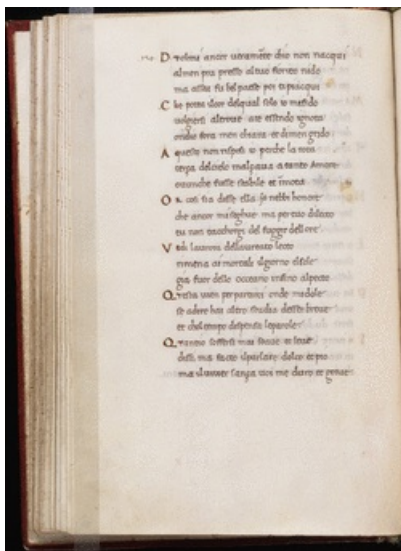 D uolmi ancor veramete chio non nacqui
almen piu presso al tuo fiorito nido
ma assai fu bel paese per ti piacqui
C he potea il cor del qual solo io mi fido
volgersi altroue a te essendo ignota
ondio fora men chiara et di men grido
A questo non risposi io perche la rota
terza del cielo malzaua a tanto Amore
ouunche fusse stabile et imota
O r cosi sia disse ella io nebbi honore
che ancor mi seghue ma per tuo diletto
tu non taccorgi del fuggir dellore
V edi laurora dellaurato lecto
rimena ai mortali il giorno el sole
gia fuor dello occeano infino al pecto
Q uesta vien per partirci onde mi dole
se a dire hai altro studia desser breue
et chol tempo dispensa le parole
Q uanto soffersi mai soaue et leue
dissi ma facto il parlare dolce et pio
ma il viuer sanza voi me duro et greue